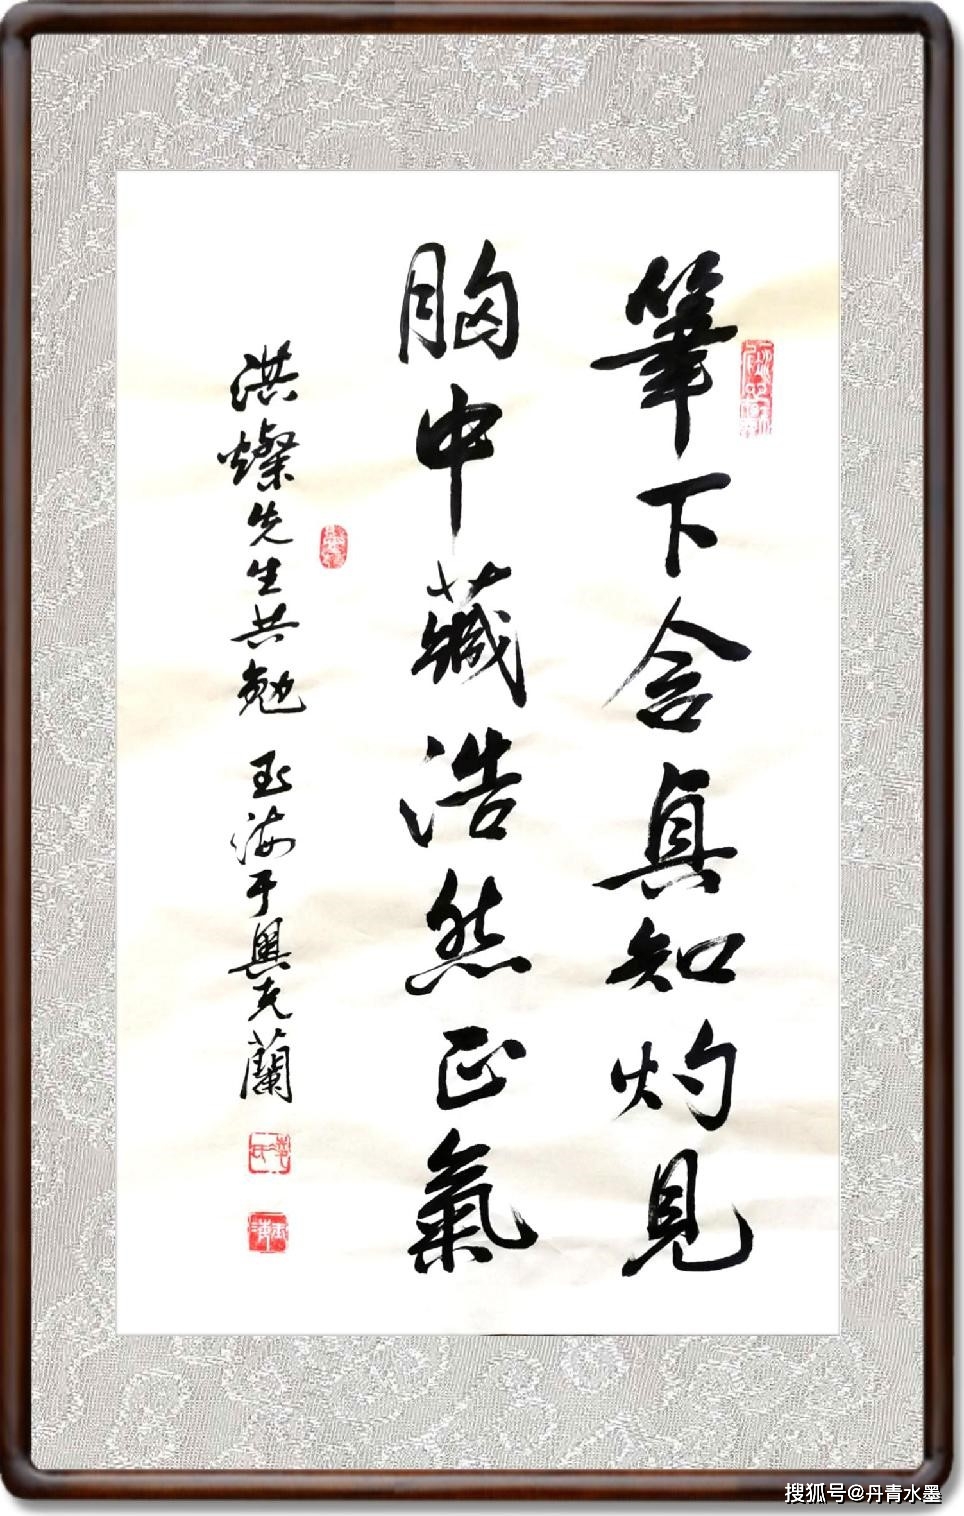 筆下含真知灼見
胸中藏浩然正氣
洪燦先生共勉 玉海于奥克蘭
搜狐号@丹青水墨